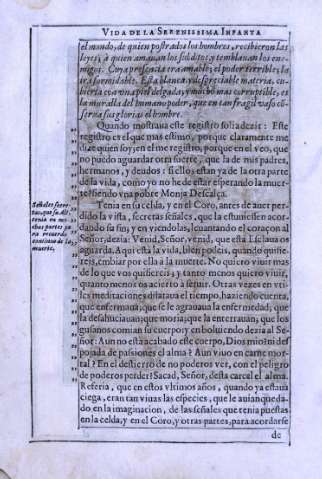 VIDA DE LA SERENISSIMA INFANTA
el mundo, de quien postrados los hombres, recibieron las
leyes, à quien amauan los subditos, y temblauan los ene-
migos. Cuya presencia era amable; el poder terrible; la
ira formidable. Esta blanca, y despreciable materia, cu-
bierta con vna piel delgada, y mucho mas corruptible, es
la muralla del humano poder, que en tan fragil vaso cõ-
serua sus glorias el hombre.
Quando mostraua este registro solia dezir: Este
registro es el que mas estimo, porque claramente me
dize quien soy; en el me registro, porque en el veo, que
no puedo aguardar otra suerte, que la de mis padres,
hermanos, y deudos: si ellos estan ya de la otra parte
de la vida, como yo no he de estar esperando la muer-
te siendo vna pobre Monja Descalça.
Tenia en su celda, y en el Coro, antes de auer per-
dido la vista, secretas señales, que la estuuiessen acor-
dando su fin, y en viendolas, leuantando el coraçon al
Señor, dezia: Venid, Señor, venid, que esta Esclaua os
aguarda. Aqui està la vida, bien podeis, quando quisie-
reis, embiar por ella à la muerte. No quiero viuir mas
de lo que vos quisiereis; y tanto menos quiero viuir,
quanto menos os acierto à seruir. Otras vezes en vti-
les meditaciones dilataua el tiempo, haziendo cuenta,
que enfermaua, que se le agrauaua la enfermedad; que
la desahuciauan; que moria; que la enterrauan; que los
gusanos comian su cuerpo; y en boluiendo dezia al Se-
ñor: Aun no està acabado este cuerpo, Dios mio? ni des
pojada de passiones el alma? Aun viuo en carne mor-
tal? En el destierro de no poderos ver, con el peligro
de poderos perder? Sacad, Señor, desta carcel el alma.
Referia, que en estos vltimos años, quando ya estaua
ciega, eran tan viuas las especies, que le auian queda-
do en la imaginacion, de las señales que tenia puestas
en la celda, y en el Coro, y otras partes, para acordarse
de
Señales secre-
tas, que su Al.
tenia en mu-
chas partes pa
ra recuerdo
continuo de la
muerte.